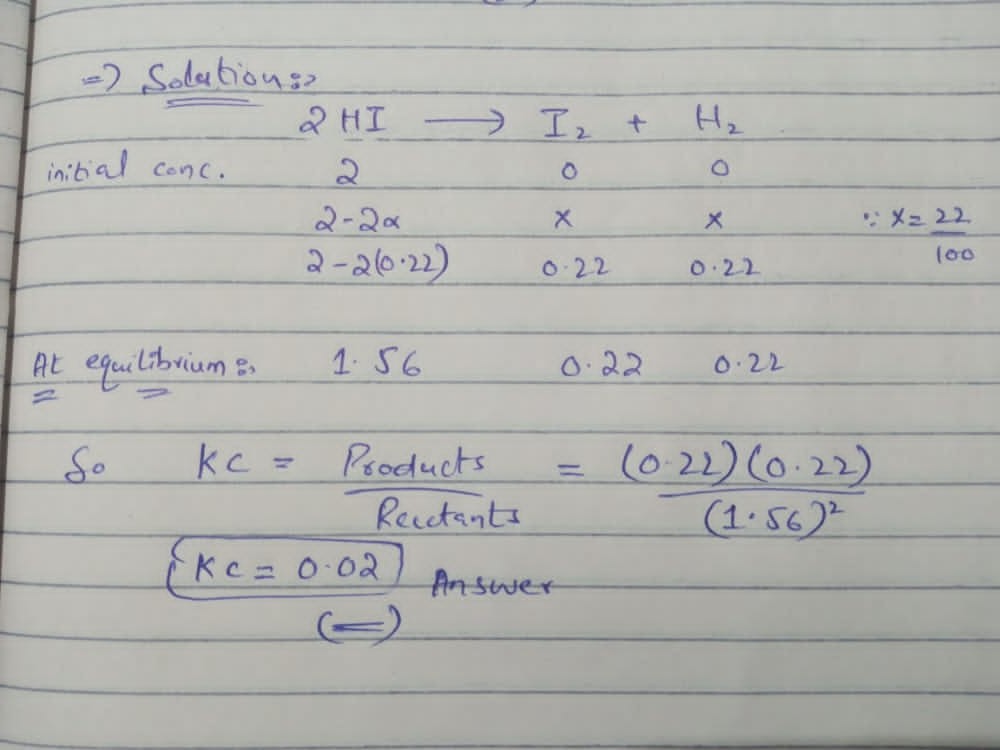 => Solution:>
2 HI → I₂ + H₂
initial conc. 2 0 0
2-2α x x ∵ x = 22/100
2-2(0.22) 0.22 0.22
At equilibrium:> 1.56 0.22 0.22
So KC = Products/Reactants = (0.22)(0.22)/(1.56)²
KC = 0.02 Answer